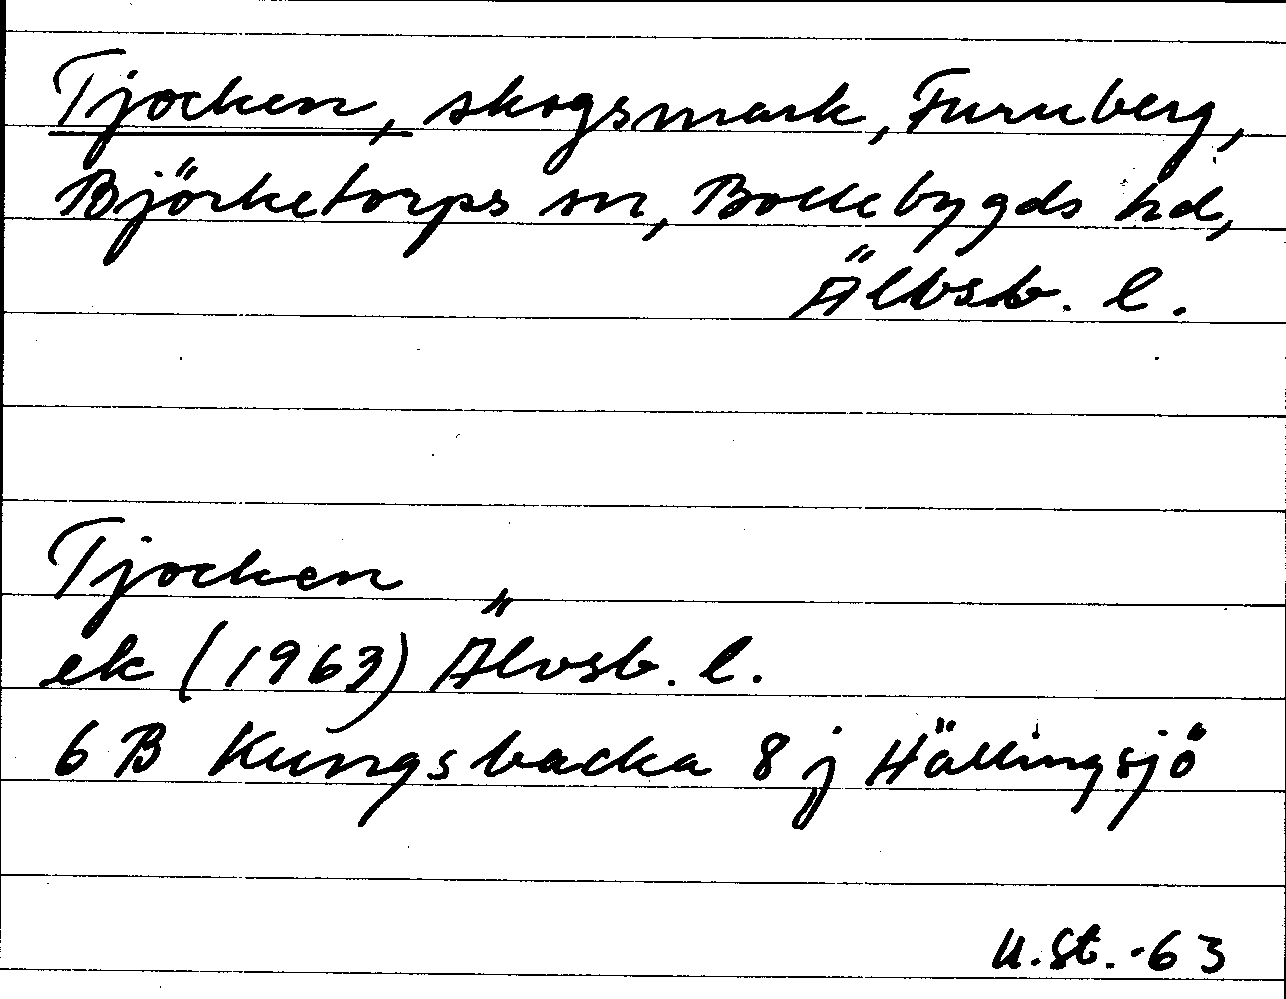 Tjocken, skogsmark, Furuberg,
Björketorps sn, Bollebygds hd,
Älvsb. l.
Tjocken
ek (1963) Älvsb. l.
6 B Kungsbacka 8 j Hällingsjö
U.St. -63